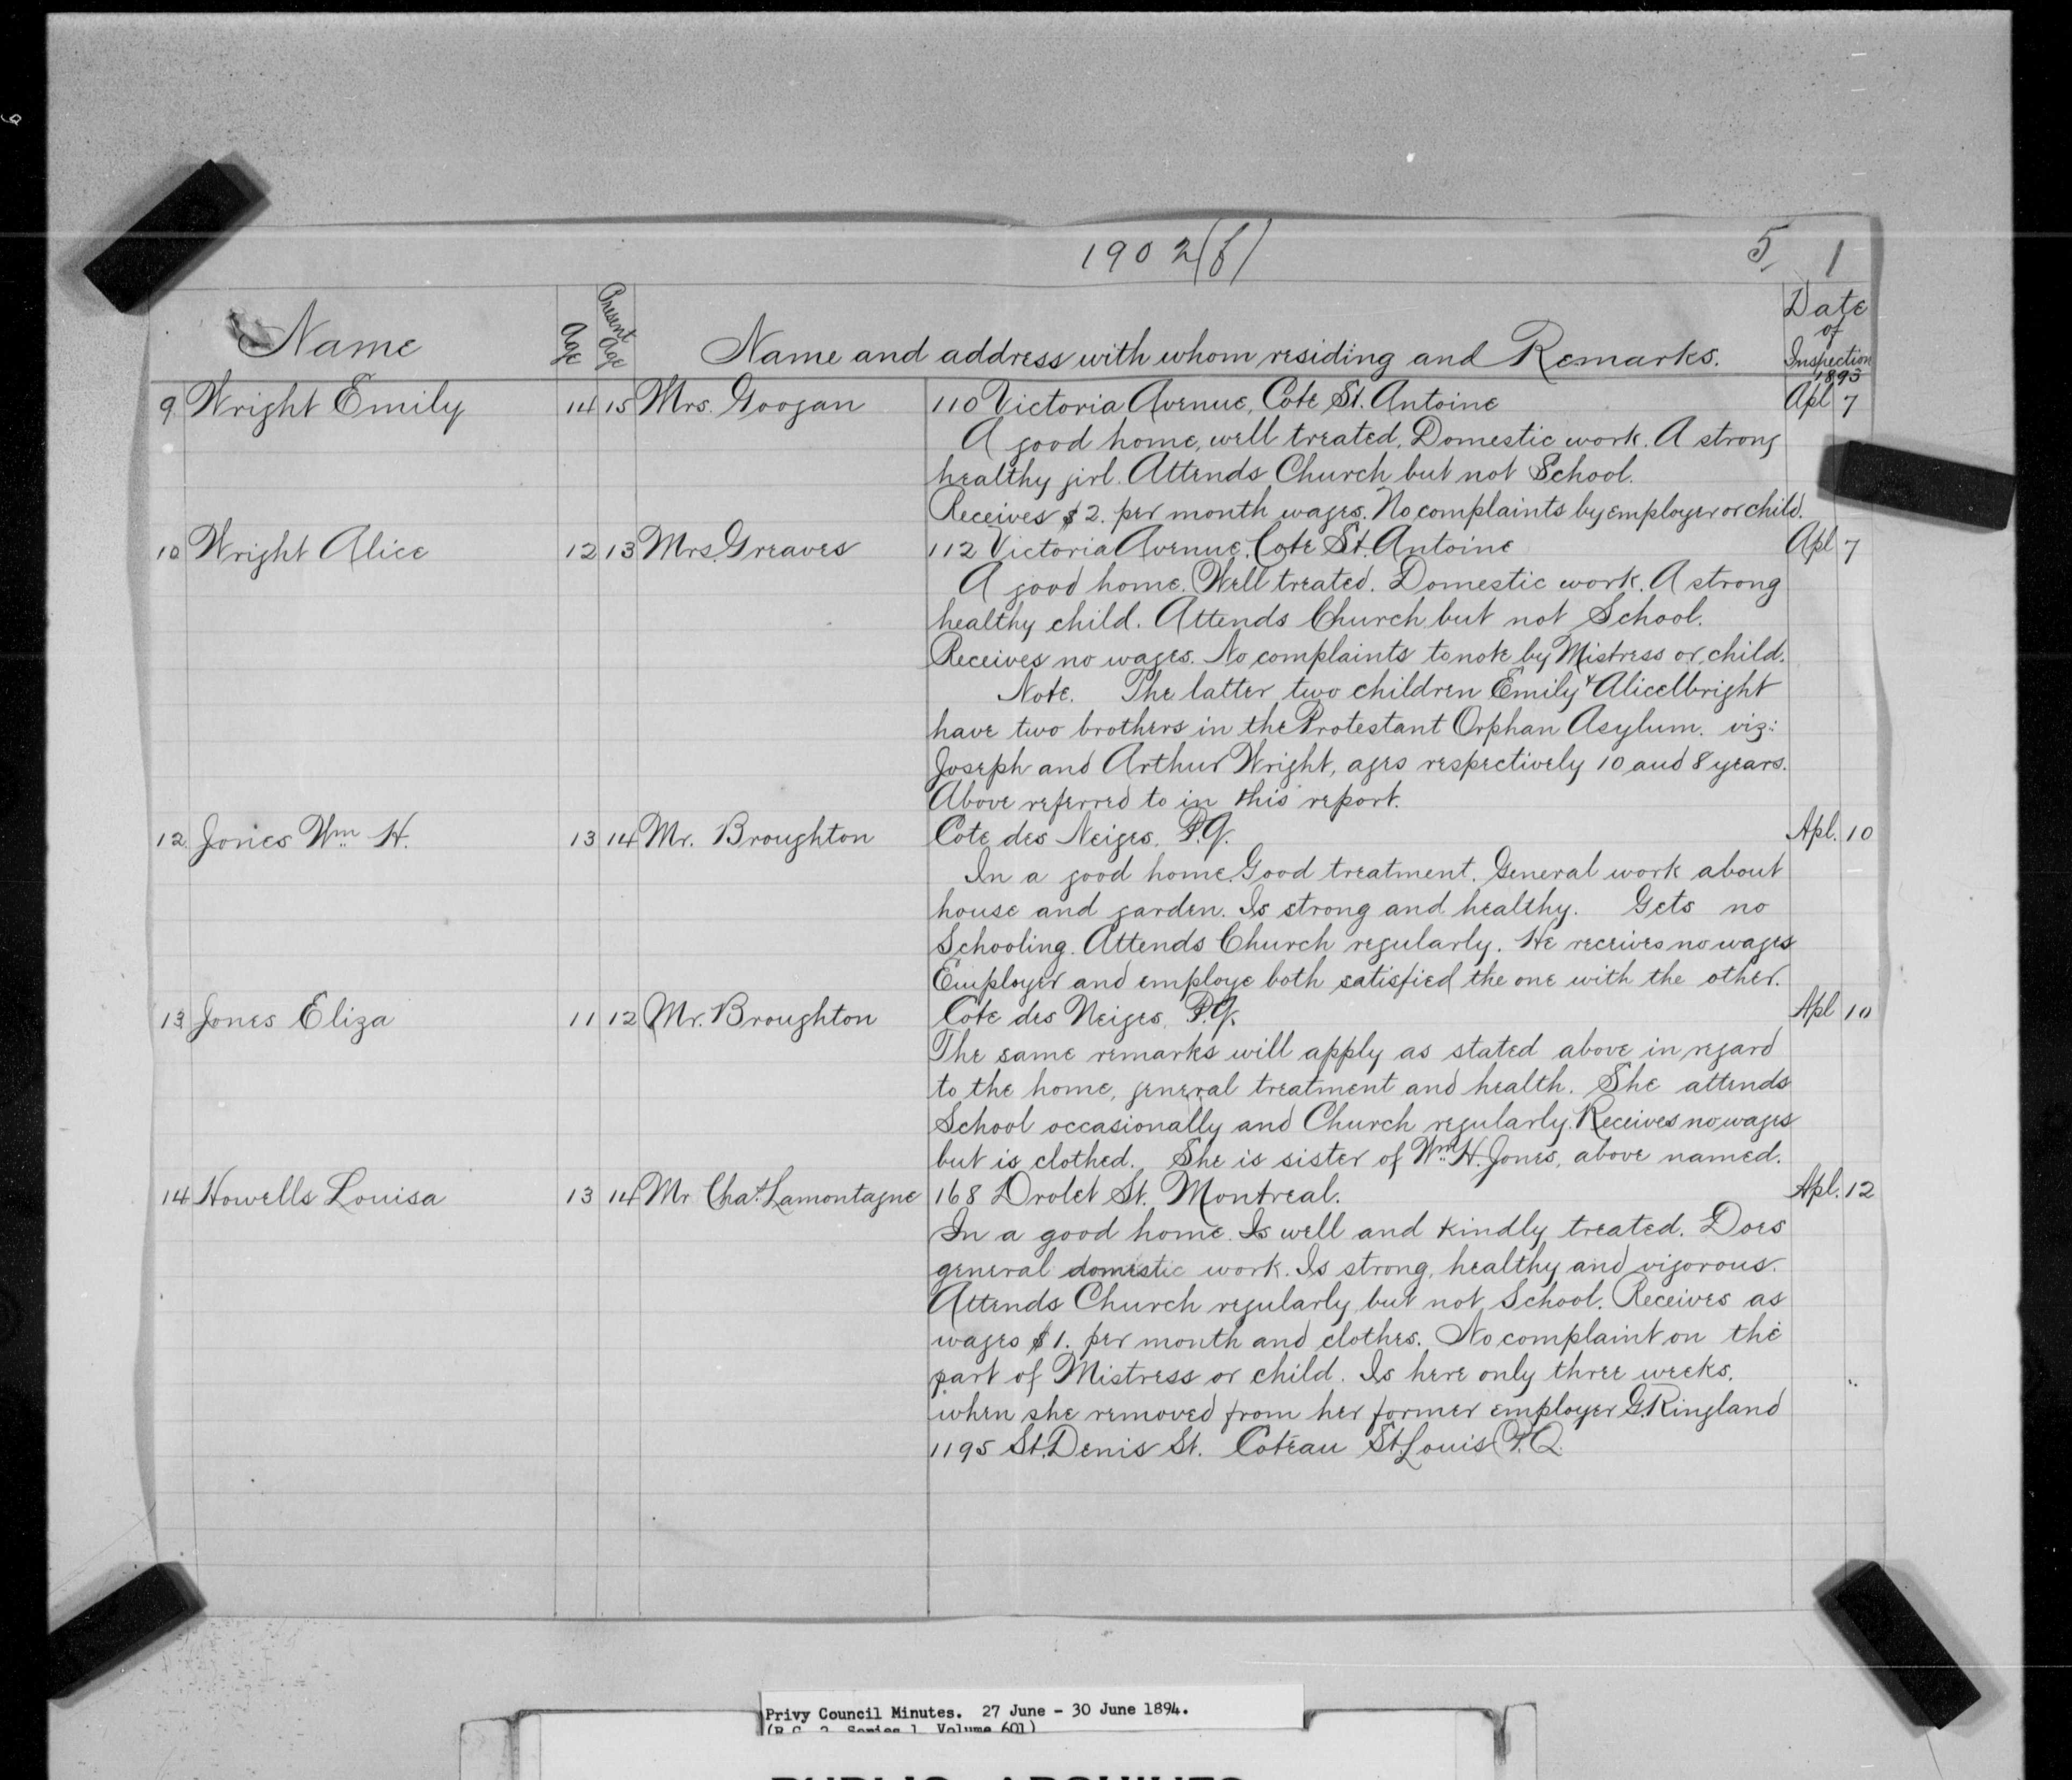 1902(f) 5, 1
Name Age Present Age Name and address with whom residing and Remarks. Date of Inspection 1893
9 Wright Emily 14 15 Mrs. Googan 110 Victoria Avenue, Cote St. Antoine Apl 7
A good home, well treated, Domestic work. A strong
healthy girl. Attends Church but not School.
Receives $2. per month wages. No complaints by employer or child.
10 Wright Alice 12 13 Mrs. Greaves 112 Victoria Avenue, Cote St. Antoine Apl 7
A good home. Well treated. Domestic work. A strong
healthy child. Attends Church but not School.
Receives no wages. No complaints to note by Mistress or child.
Note. The latter two children Emily & Alice Wright
have two brothers in the Protestant Orphan Asylum. viz:
Joseph and Arthur Wright, ages respectively 10 and 8 years.
Above referred to in this report.
12 Jones Wm. H. 13 14 Mr. Broughton Cote des Neiges, P.Q. Apl. 10
In a good home. Good treatment. General work about
house and garden. Is strong and healthy. Gets no
Schooling. Attends Church regularly. He receives no wages
Employer and employe both satisfied the one with the other.
13 Jones Eliza 11 12 Mr. Broughton Cote des Neiges, P.Q. Apl 10
The same remarks will apply as stated above in regard
to the home, general treatment and health. She attends
School occasionally and Church regularly. Receives no wages
but is clothed. She is sister of Wm. H. Jones, above named.
14 Howells Louisa 13 14 Mr Chas. Lamontagne 168 Drolet St. Montreal. Apl. 12
In a good home. Is well and kindly treated. Does
general domestic work. Is strong, healthy and vigorous.
Attends Church regularly but not School. Receives as
wages $1. per month and clothes. No complaint on the
part of Mistress or child. Is here only three weeks,
when she removed from her former employer G. Ringland
1195 St. Denis St. Coteau St. Louis P.Q.
Privy Council Minutes. 27 June - 30 June 1894.
(R.G. 2, Series 1, Volume 601)
PUBLIC ARCHIVES